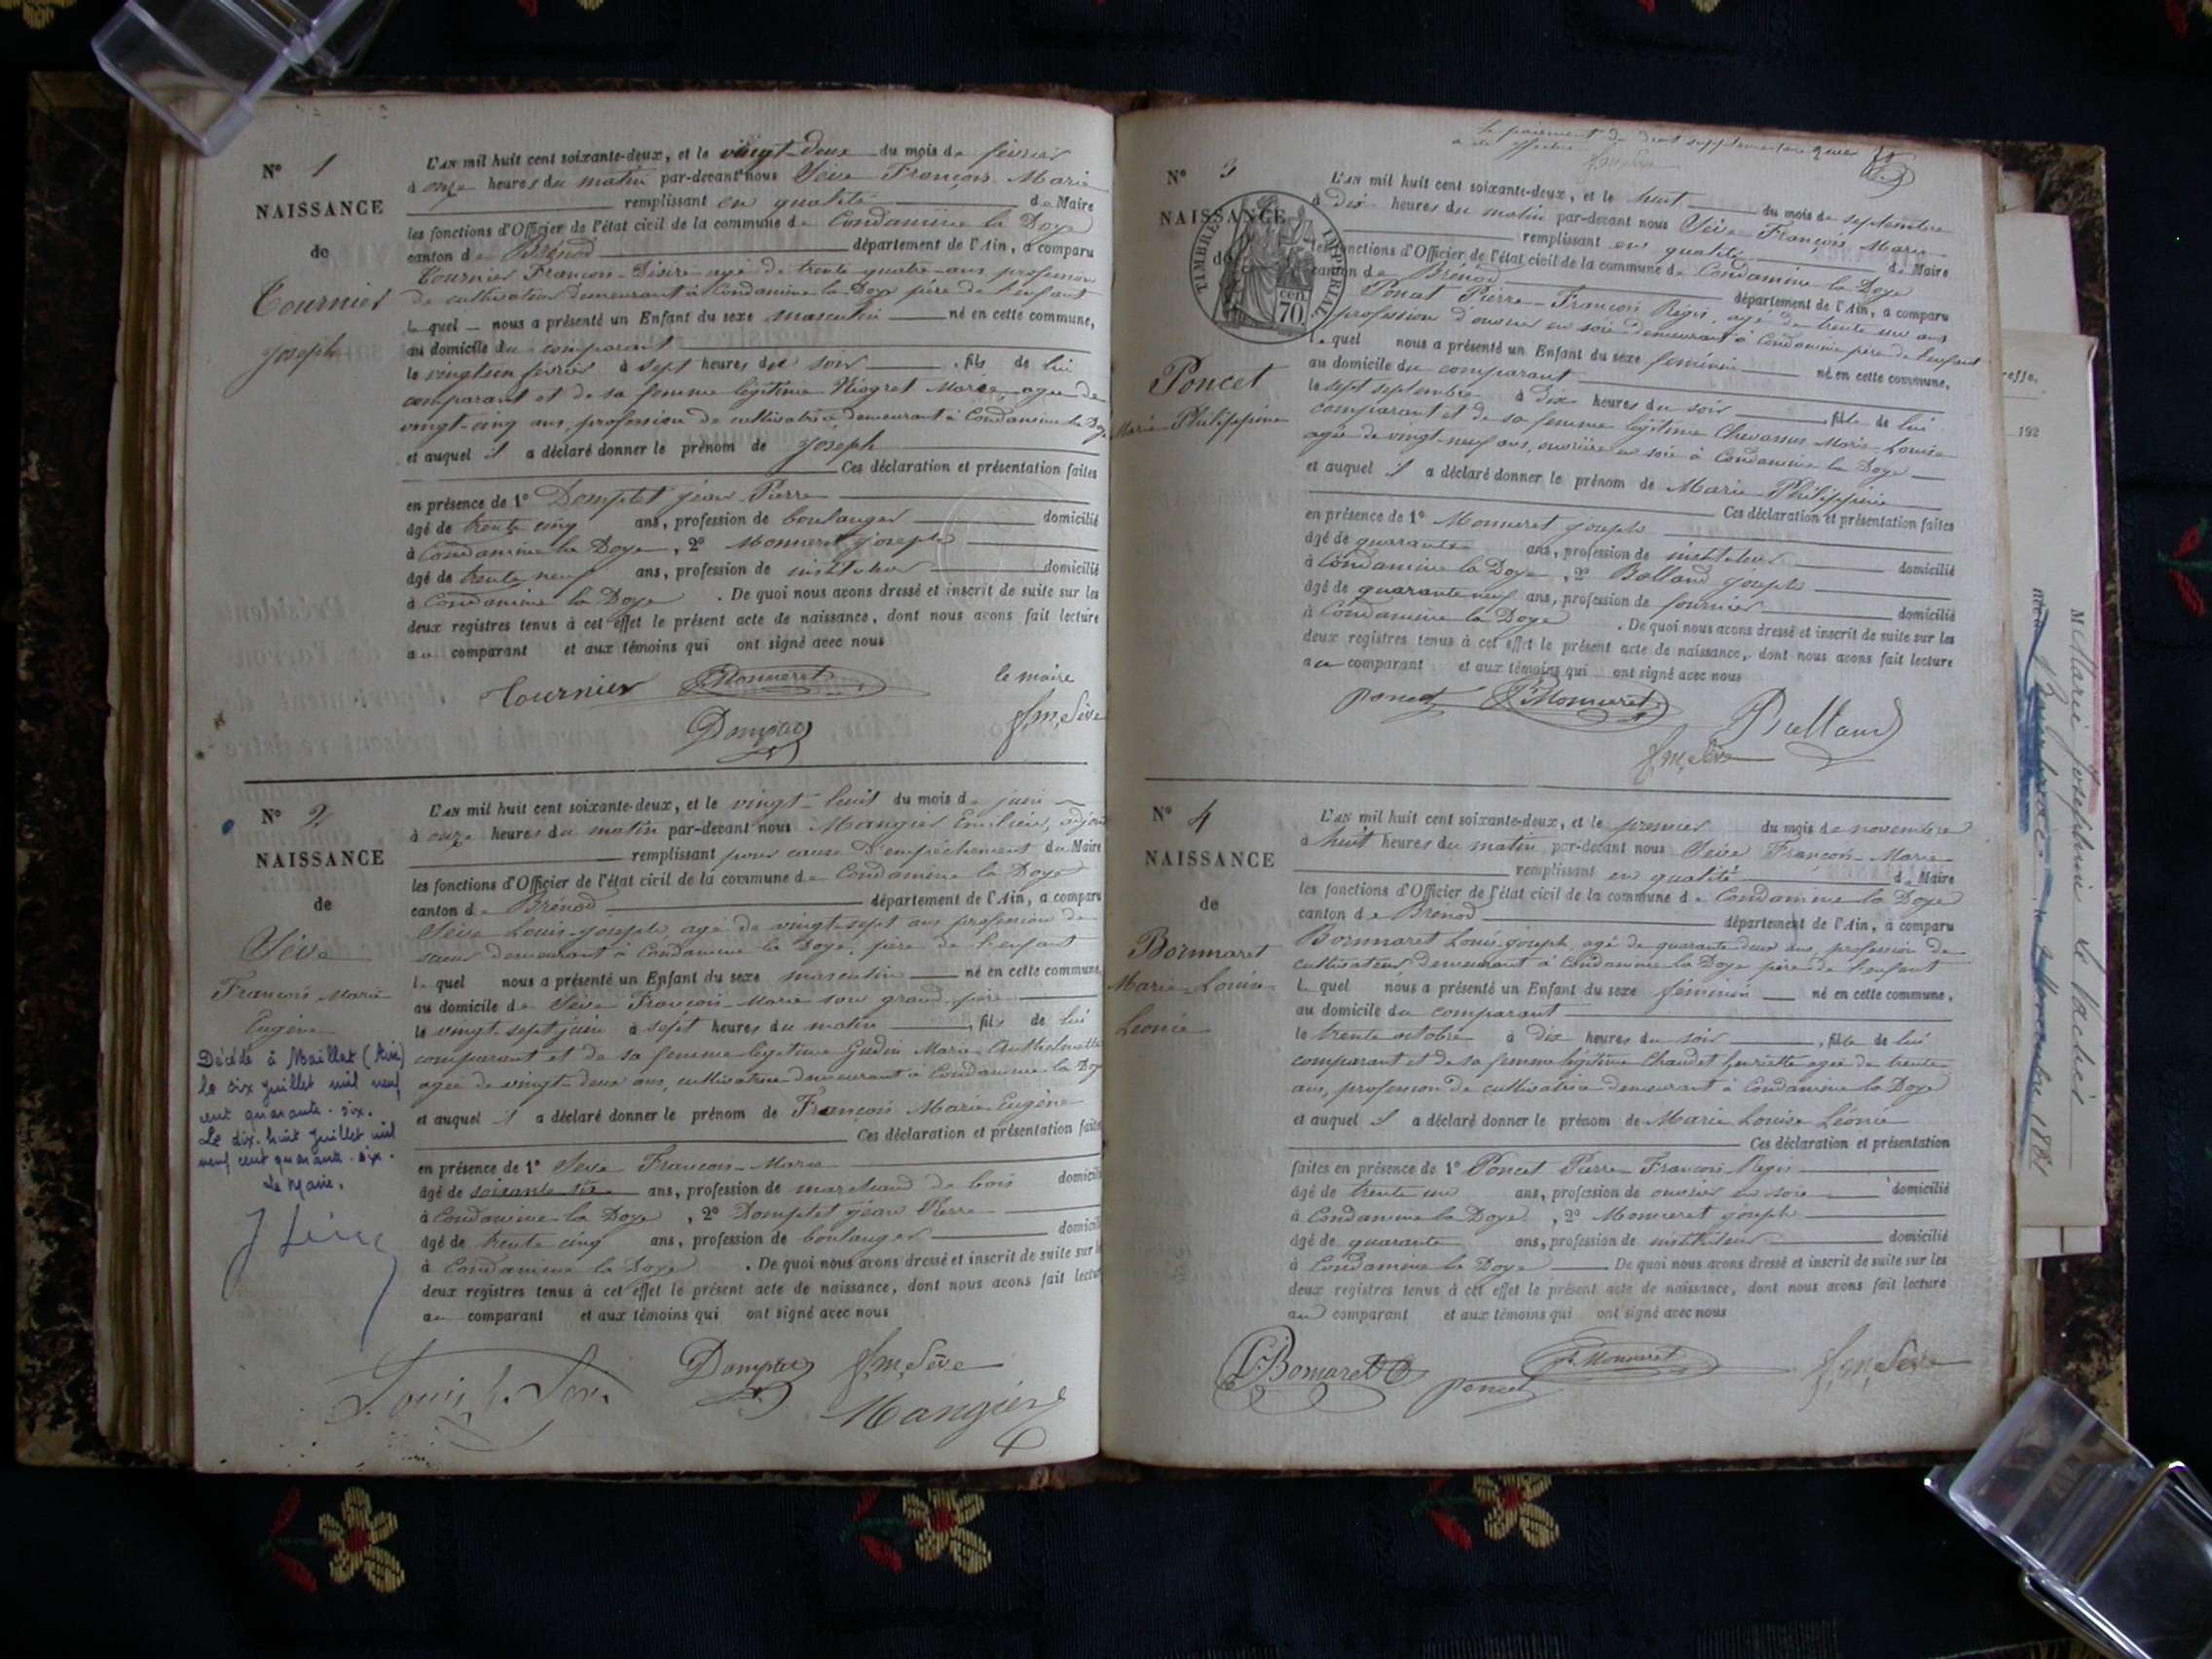 N° 1
NAISSANCE
de
Tournier
Joseph
L'AN mil huit cent soixante-deux, et le vingt-deux du mois de février
à onze heures du matin par-devant nous Sève François Marie
remplissant en qualité de Maire
les fonctions d'Officier de l'état civil de la commune de Condamine la Doye
canton de Brénod département de l'Ain, a comparu
Tournier François-Désiré agé de trente quatre ans profession
de cultivateur demeurant à Condamine la Doye père de l'enfant
lequel nous a présenté un Enfant du sexe masculin né en cette commune,
au domicile du comparant
le vingt un février à sept heures du soir, fils de lui
comparant et de sa femme légitime Niogret Marie, agée de
vingt-cinq ans, profession de cultivatrice, demeurant à Condamine la Doye
et auquel il a déclaré donner le prénom de Joseph
Ces déclaration et présentation faites
en présence de 1° Domptet jean Pierre
âgé de trente cinq ans, profession de boulanger domicilié
à Condamine la Doye, 2° Monneret joseph
âgé de trente neuf ans, profession de instituteur domicilié
à Condamine la Doye. De quoi nous avons dressé et inscrit de suite sur les
deux registres tenus à cet effet le présent acte de naissance, dont nous avons fait lecture
au comparant et aux témoins qui ont signé avec nous
Tournier Monneret le maire
Domptet f,m, Sève
N° 2
NAISSANCE
de
Sève
François Marie
Eugène
Décédé à Maillat (Ain)
le six juillet mil neuf
cent quarante-six.
Le dix-huit juillet mil
neuf cent quarante-six.
Le Maire,
L'AN mil huit cent soixante-deux, et le vingt-huit du mois de juin
à onze heures du matin par-devant nous Mangier Emilien, adjoint
remplissant pour cause d'empêchement du Maire
les fonctions d'Officier de l'état civil de la commune de Condamine la Doye
canton de Brénod département de l'Ain, a comparu
Sève Louis-joseph, agé de vingt-sept ans profession de
demeurant à Condamine la Doye, père de l'enfant
lequel nous a présenté un Enfant du sexe masculin né en cette commune,
au domicile de Sève François-Marie son grand-père
le vingt-sept juin à sept heures du matin, fils de lui
comparant et de sa femme légitime Gudin Marie Anthelmette
agée de vingt-deux ans, cultivatrice demeurant à Condamine la Doye
et auquel il a déclaré donner le prénom de François Marie Eugène
Ces déclaration et présentation faites
en présence de 1° Sève François-Marie
âgé de soixante six ans, profession de marchand de bois domicilié
à Condamine la Doye, 2° Domptet jean Pierre
âgé de trente cinq ans, profession de boulanger domicilié
à Condamine la Doye. De quoi nous avons dressé et inscrit de suite sur les
deux registres tenus à cet effet le présent acte de naissance, dont nous avons fait lecture
au comparant et aux témoins qui ont signé avec nous
Domptet f,m, Sève
Mangier
le paiement du droit supplémentaire
N° 3
NAISSANCE
de
TIMBRE IMPERIAL
cen.
70
Poncet
Marie-Philippine
L'AN mil huit cent soixante-deux, et le huit du mois de septembre
à dix heures du matin par-devant nous Sève François Marie
remplissant en qualité de Maire
les fonctions d'Officier de l'état civil de la commune de Condamine la Doye
canton de Brénod département de l'Ain, a comparu
Poncet Pierre-François Régis, agé de trente un ans
profession d'ouvrier en soie demeurant à Condamine père de l'enfant
lequel nous a présenté un Enfant du sexe féminin né en cette commune,
au domicile du comparant
le sept septembre à dix heures du soir, fille de lui
comparant et de sa femme légitime Chevassus Marie-Louise
agée de vingt-neuf ans, ouvrière en soie à Condamine la Doye
et auquel il a déclaré donner le prénom de Marie Philippine
Ces déclaration et présentation faites
en présence de 1° Monneret joseph
âgé de quarante ans, profession de instituteur domicilié
à Condamine la Doye, 2° Balland joseph
âgé de quarante neuf ans, profession de fournier domicilié
à Condamine la Doye. De quoi nous avons dressé et inscrit de suite sur les
deux registres tenus à cet effet le présent acte de naissance, dont nous avons fait lecture
au comparant et aux témoins qui ont signé avec nous
poncet Monneret Balland
f,m, Sève
N° 4
NAISSANCE
de
Bonmaret
Marie-Louise
Léonie
L'AN mil huit cent soixante-deux, et le premier du mois de novembre
à huit heures du matin par-devant nous Sève François-Marie
remplissant en qualité de Maire
les fonctions d'Officier de l'état civil de la commune de Condamine la Doye
canton de Brénod département de l'Ain, a comparu
Bonmaret Louis-joseph, agé de quarante deux ans, profession de
cultivateur demeurant à Condamine la Doye père de l'enfant
lequel nous a présenté un Enfant du sexe féminin né en cette commune,
au domicile du comparant
le trente octobre à dix heures du soir, fille de lui
comparant et de sa femme légitime Chaudet henriette agée de trente
ans, profession de cultivatrice demeurant à Condamine la Doye
et auquel il a déclaré donner le prénom de Marie Louise Léonie
Ces déclaration et présentation
faites en présence de 1° Poncet Pierre-François Régis
âgé de trente un ans, profession de ouvrier en soie domicilié
à Condamine la Doye, 2° Monneret joseph
âgé de quarante ans, profession de instituteur domicilié
à Condamine la Doye De quoi nous avons dressé et inscrit de suite sur les
deux registres tenus à cet effet le présent acte de naissance, dont nous avons fait lecture
au comparant et aux témoins qui ont signé avec nous
poncet Monneret f,m, Sève
192
M Marie Joséphine
novembre 1881